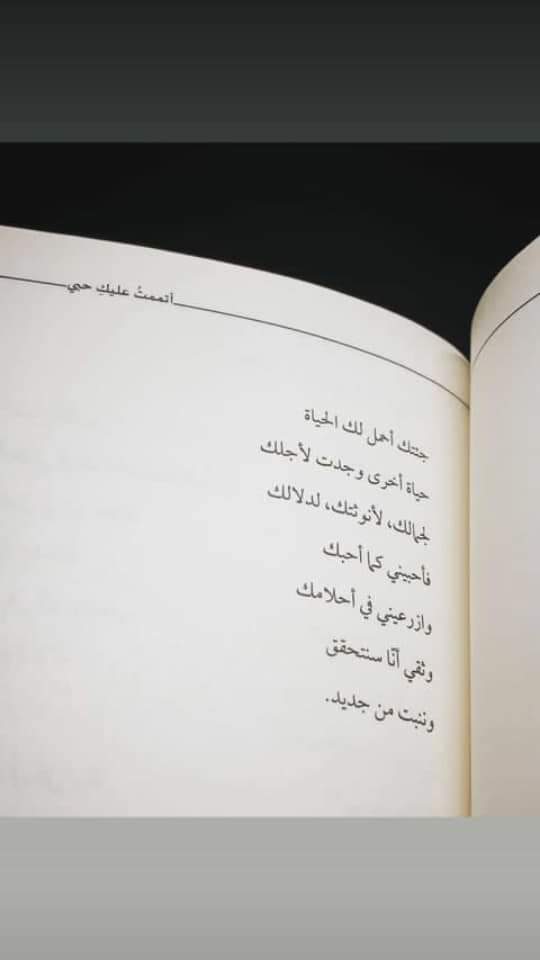 أتممتُ عليكِ حبي
جئتك أحمل لك الحياة
حياة أخرى وجدت لأجلك
لجمالك، لأنوثتك، لدلالك
فأحبيني كما أحبك
وازرعيني في أحلامك
وثقي أنّا سنتحقق
وننبت من جديد.